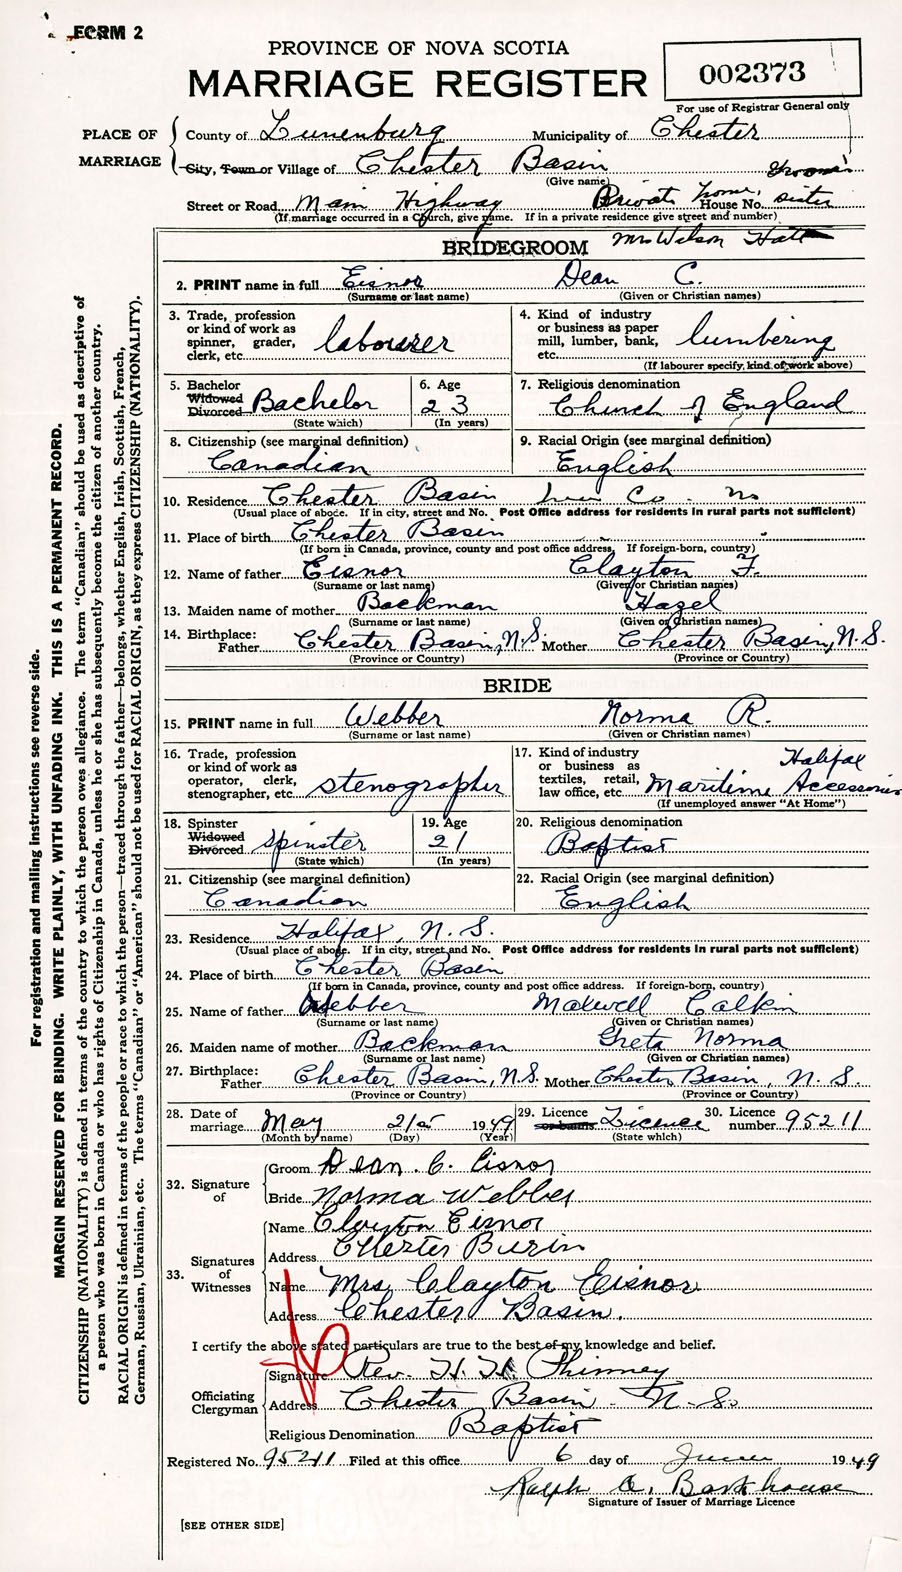 FORM 2
PROVINCE OF NOVA SCOTIA
MARRIAGE REGISTER
002373
For use of Registrar General only
PLACE OF MARRIAGE
County of Lunenburg Municipality of Chester
City, Town or Village of Chester Basin
(Give name)
Groom's
Street or Road Main Highway Private home, House No. sister
(If marriage occurred in a Church, give name. If in a private residence give street and number)
Mrs Wilson Hatt
BRIDEGROOM
2. PRINT name in full Eisnor Dean C.
(Surname or last name) (Given or Christian names)
3. Trade, profession or kind of work as spinner, grader, clerk, etc. labourer
4. Kind of industry or business as paper mill, lumber, bank, etc. lumbering
(If labourer specify kind of work above)
5. Bachelor Widowed Divorced Bachelor
(State which)
6. Age 23
(In years)
7. Religious denomination
Church of England
8. Citizenship (see marginal definition)
Canadian
9. Racial Origin (see marginal definition)
English
10. Residence Chester Basin Lun Co. NS
(Usual place of abode. If in city, street and No. Post Office address for residents in rural parts not sufficient)
11. Place of birth Chester Basin
(If born in Canada, province, county and post office address. If foreign-born, country)
12. Name of father Eisnor Clayton F.
(Surname or last name) (Given or Christian names)
13. Maiden name of mother Backman Hazel
(Surname or last name) (Given or Christian names)
14. Birthplace:
Father Chester Basin, N.S. Mother Chester Basin, N.S.
(Province or Country) (Province or Country)
BRIDE
15. PRINT name in full Webber Norma R.
(Surname or last name) (Given or Christian names)
16. Trade, profession or kind of work as operator, clerk, stenographer, etc. stenographer
17. Kind of industry or business as textiles, retail, law office, etc. Halifax Maritime Accessories
(If unemployed answer "At Home")
18. Spinster Widowed Divorced Spinster
(State which)
19. Age 21
(In years)
20. Religious denomination
Baptist
21. Citizenship (see marginal definition)
Canadian
22. Racial Origin (see marginal definition)
English
23. Residence Halifax, N.S.
(Usual place of abode. If in city, street and No. Post Office address for residents in rural parts not sufficient)
24. Place of birth Chester Basin
(If born in Canada, province, county and post office address. If foreign-born, country)
25. Name of father Webber Maxwell Calkin
(Surname or last name) (Given or Christian names)
26. Maiden name of mother Backman Greta Norma
(Surname or last name) (Given or Christian names)
27. Birthplace:
Father Chester Basin, N.S. Mother Chester Basin, N.S.
(Province or Country) (Province or Country)
28. Date of marriage May 21st 1949
(Month by name) (Day) (Year)
29. Licence or banns Licence
(State which)
30. Licence number 95211
32. Signature of
Groom Dean C. Eisnor
Bride Norma Webber
33. Signatures of Witnesses
Name Clayton Eisnor
Address Chester Basin
Name Mrs Clayton Eisnor
Address Chester Basin.
I certify the above stated particulars are true to the best of my knowledge and belief.
Officiating Clergyman
Signature Rev. H. H. Phinney
Address Chester Basin N.S.
Religious Denomination Baptist
Registered No. 95211 Filed at this office 6 day of June 1949
Ralph A. Barkhouse
Signature of Issuer of Marriage Licence
[SEE OTHER SIDE]
For registration and mailing instructions see reverse side.
MARGIN RESERVED FOR BINDING. WRITE PLAINLY, WITH UNFADING INK. THIS IS A PERMANENT RECORD.
CITIZENSHIP (NATIONALITY) is defined in terms of the country to which the person owes allegiance. The term "Canadian" should be used as descriptive of
a person who was born in Canada or who has rights of Citizenship in Canada, unless he or she has subsequently become the citizen of another country.
RACIAL ORIGIN is defined in terms of the people or race to which the person—traced through the father—belongs, whether English, Irish, Scottish, French,
German, Russian, Ukrainian, etc. The terms "Canadian" or "American" should not be used for RACIAL ORIGIN, as they express CITIZENSHIP (NATIONALITY).